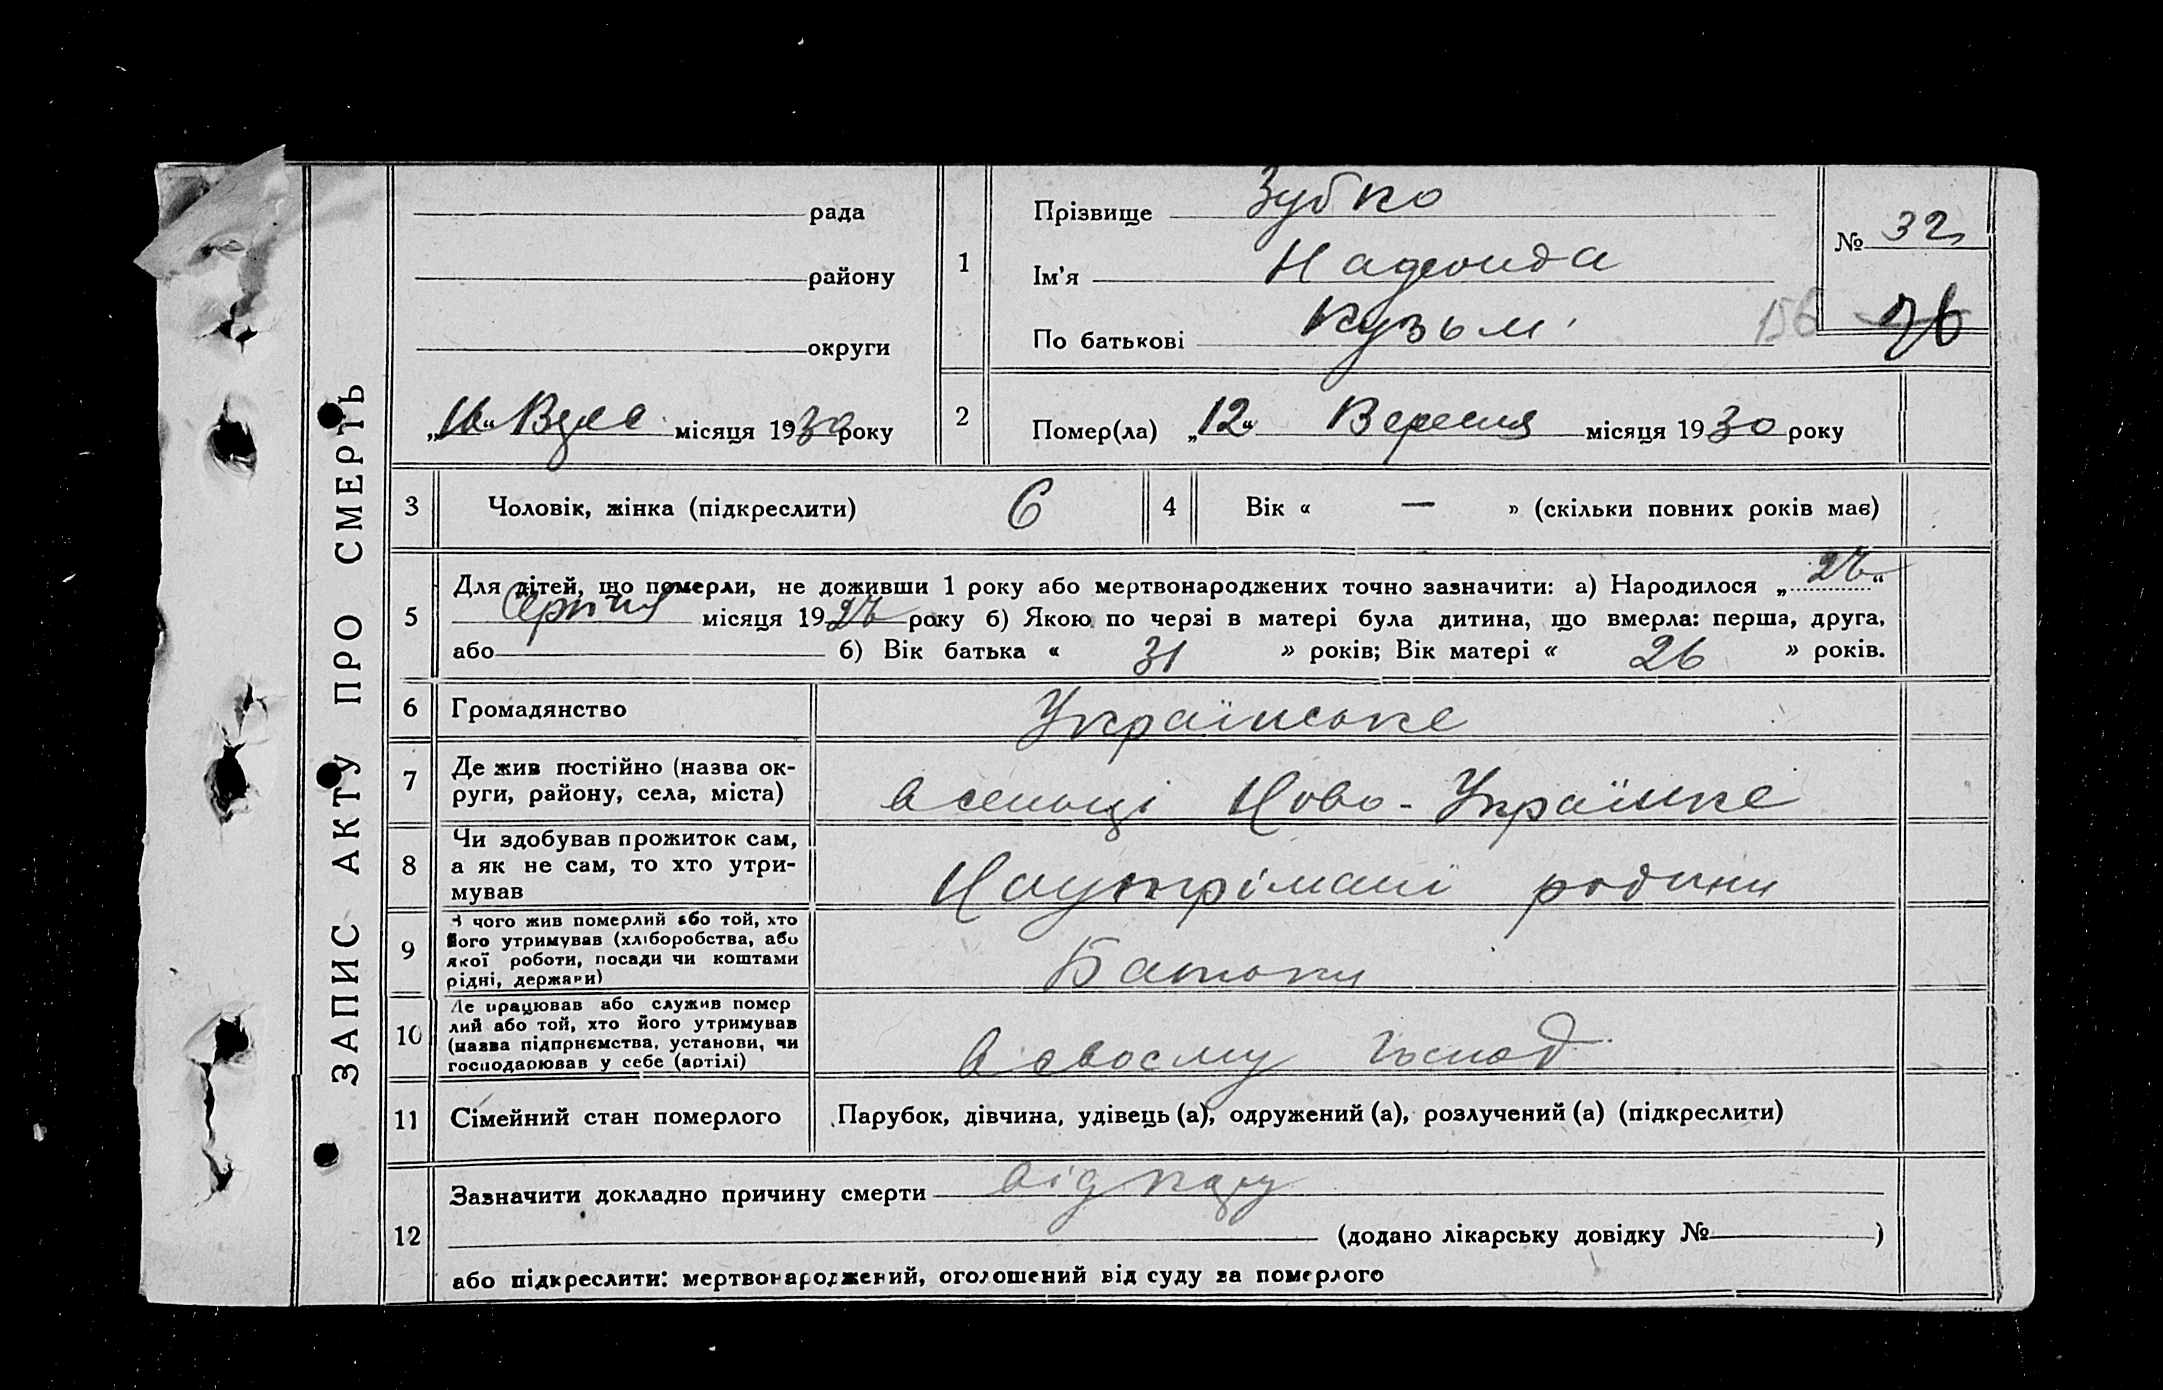 ЗАПИС АКТУ ПРО СМЕРТЬ
рада
району
округи
місяця 1930 року
1
Прізвище Зубко
Ім'я Надежда
По батькові Кузьм
№ 32
156
76
2
Помер(ла) „12“ Вересня місяця 1930 року
3
Чоловік, жінка (підкреслити) 6
4
Вік « — » (скільки повних років має)
5
Для дітей, що померли, не доживши 1 року або мертвонароджених точно зазначити: а) Народилося „26“
Серпня місяця 19 року б) Якою по черзі в матері була дитина, що вмерла: перша, друга,
або б) Вік батька « 31 » років; Вік матері « 26 » років.
6
Громадянство
Українське
7
Де жив постійно (назва ок-
руги, району, села, міста)
в селищі Ново-Українке
8
Чи здобував прожиток сам,
а як не сам, то хто утри-
мував
На утрімані родини
9
З чого жив померлий або той, хто
його утримував (хліборобства, або
якої роботи, посади чи коштами
рідні, держави)
Батьки
10
Де працював або служив помер
лий або той, хто його утримував
(назва підприємства, установи, чи
господарював у себе (артілі)
в своєму господ.
11
Сімейний стан померлого
Парубок, дівчина, удівець (а), одружений (а), розлучений (а) (підкреслити)
12
Зазначити докладно причину смерти від
(додано лікарську довідку № )
або підкреслити: мертвонароджений, оголошений від суду за померлого